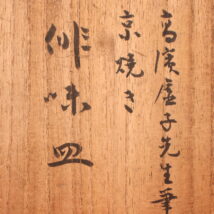 高濱虚子先生筆
京焼き
俳味皿